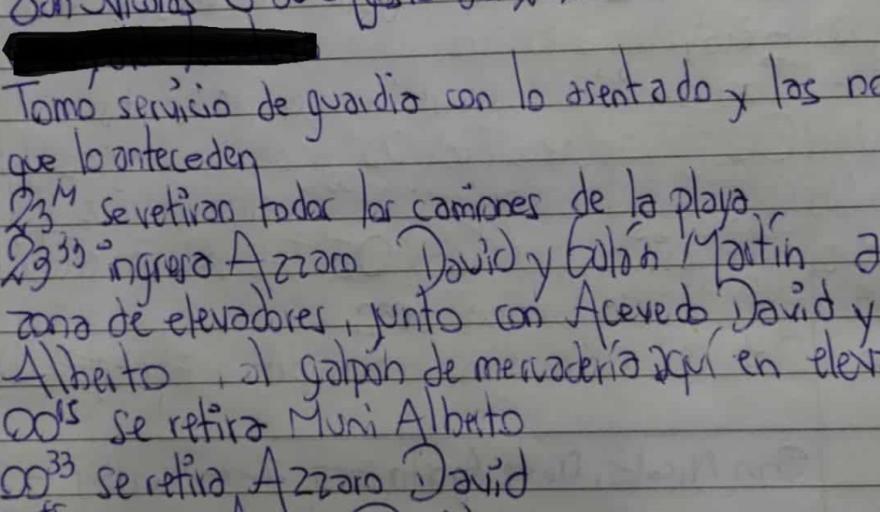 San Nicolás
Tomó servicio de guardia con lo asentado y las no
que lo anteceden
23 se retiran todos los camiones de la playa
23³⁵ ingresa Azzaro David y Galán Martín a
zona de elevadores, junto con Acevedo, David y
Alberto, al galpón de mercadería aquí en elev
00¹⁵ se retira Muni Alberto
00³³ se retira, Azzaro David